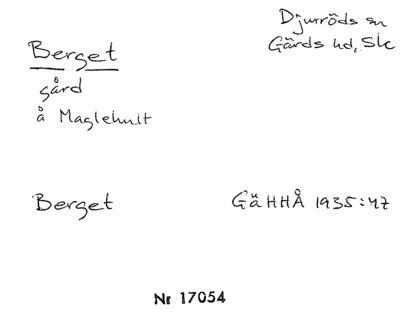 Berget
gård
å Maglehult
Djurröds sn
Gärds hd, Sk
Berget
GäHHÅ 1935:47
Nr 17054